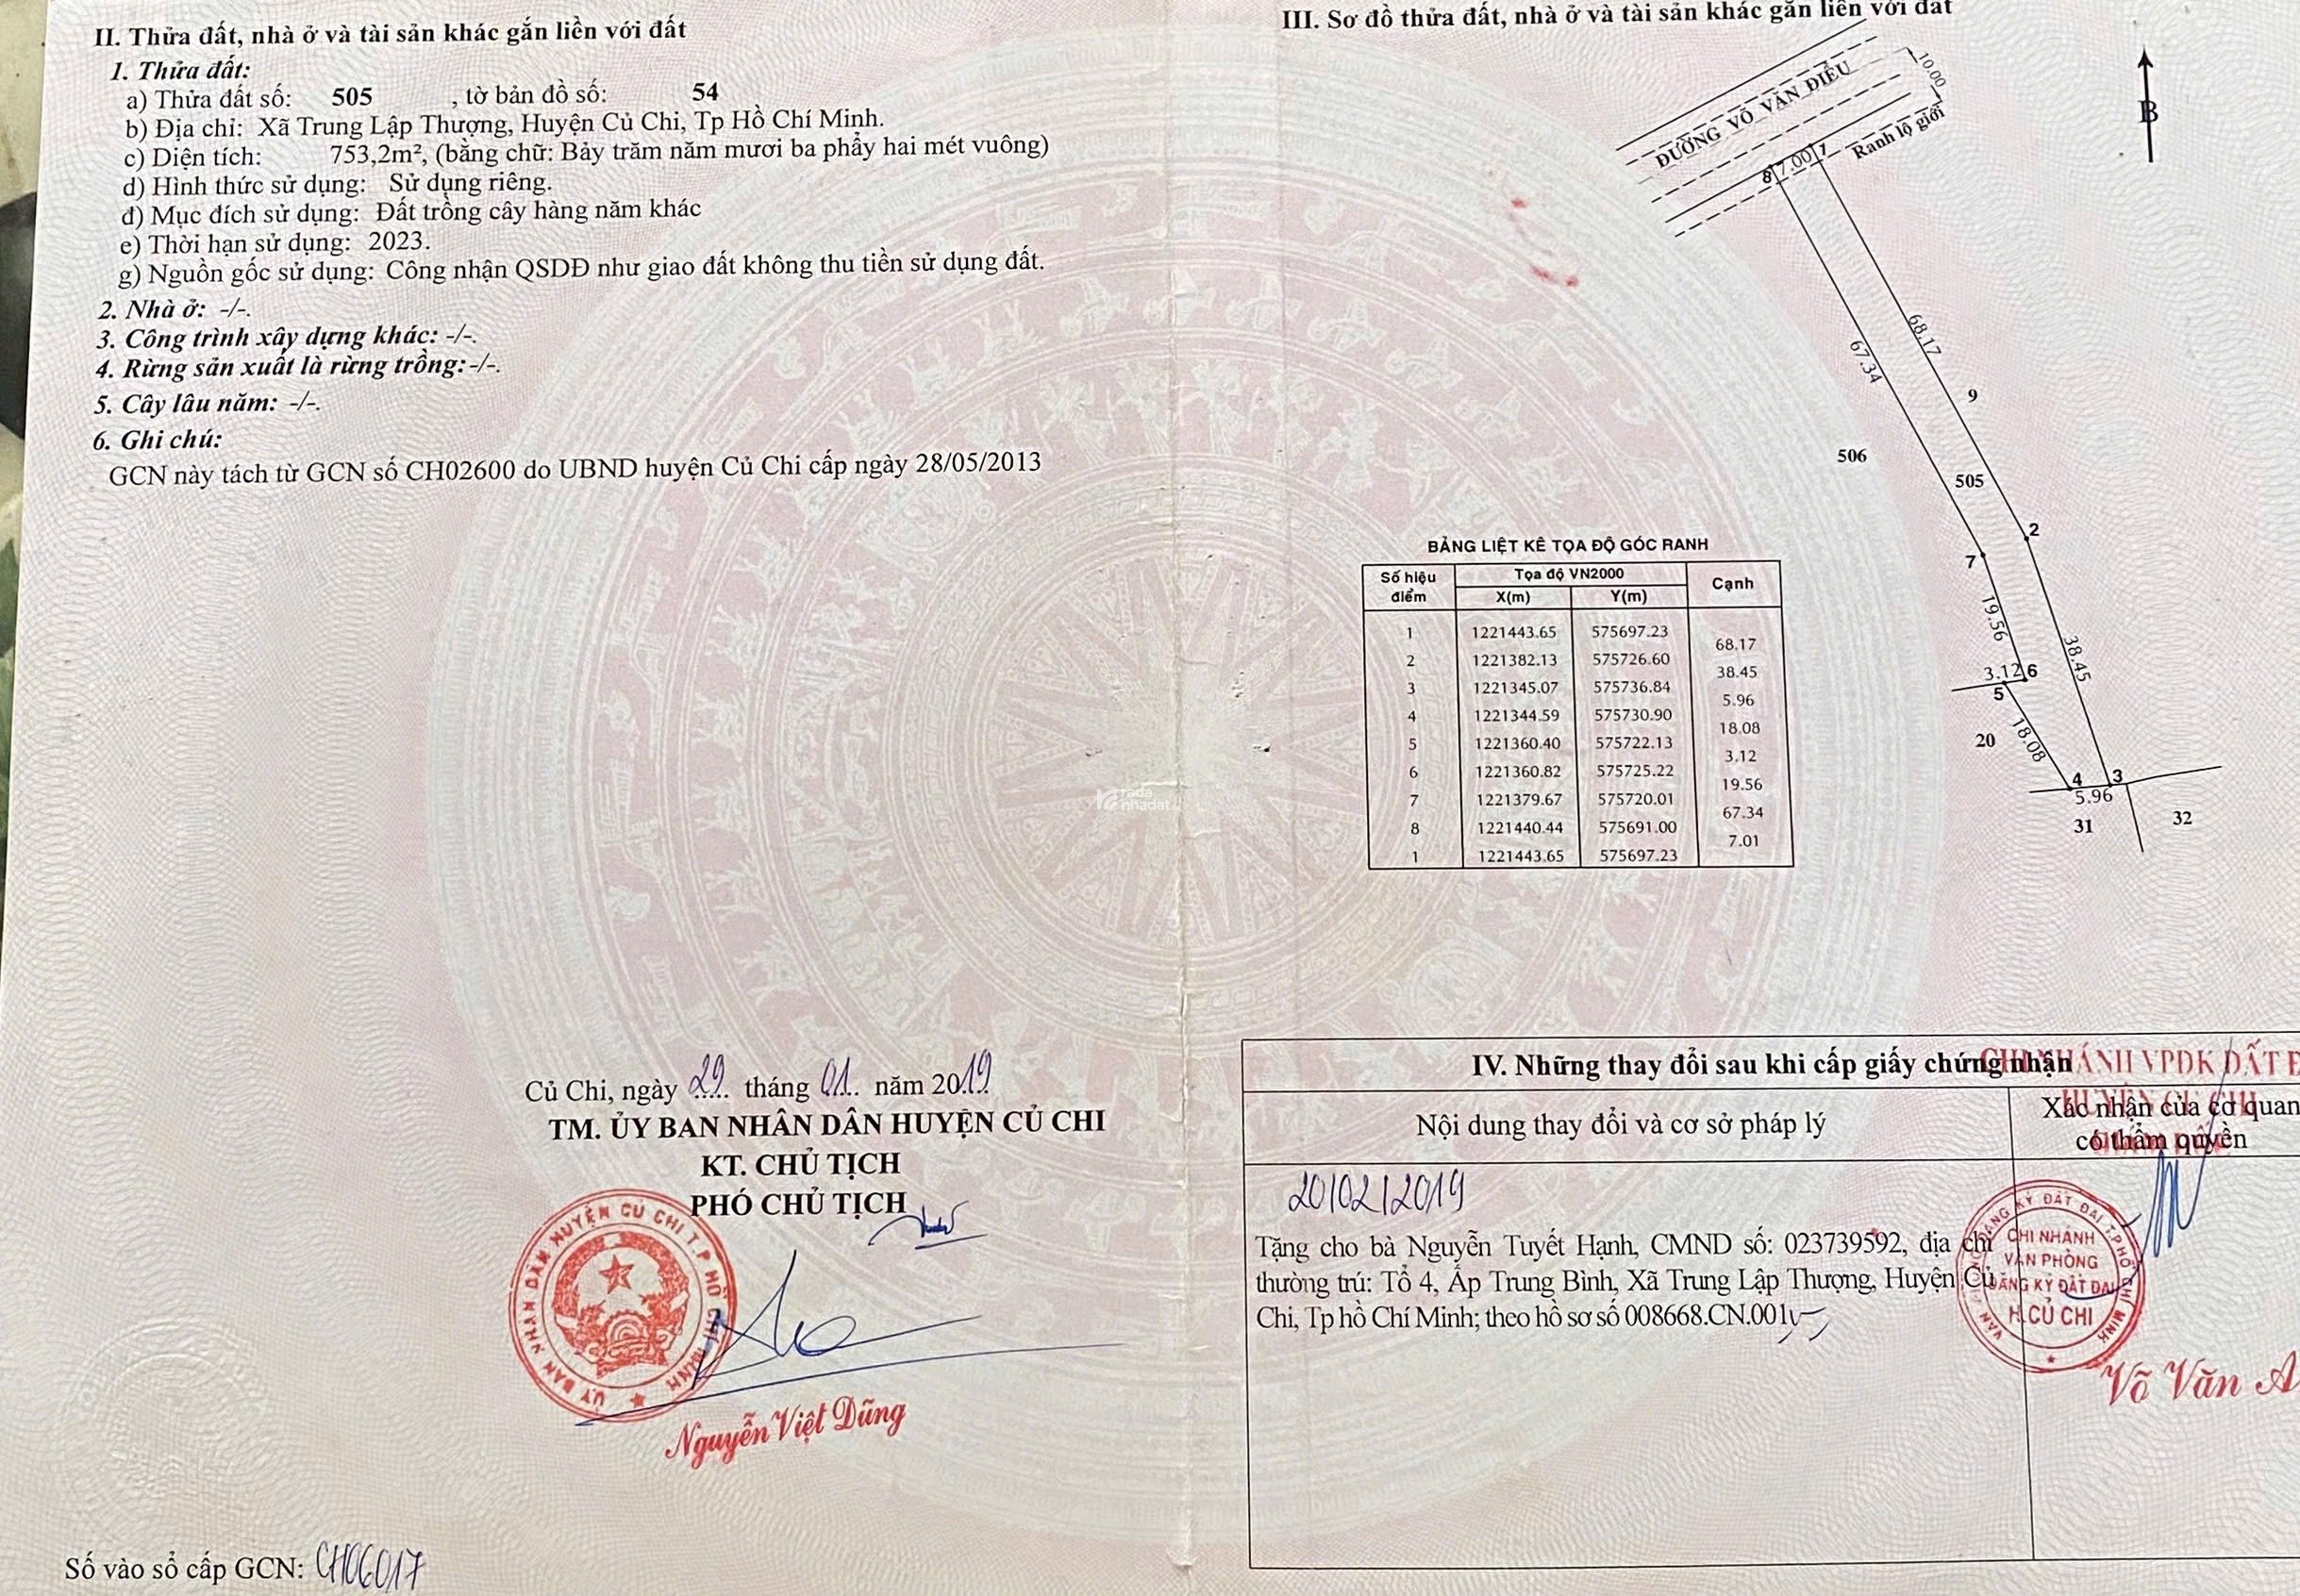 II. Thửa đất, nhà ở và tài sản khác gắn liền với đất
1. Thửa đất:
a) Thửa đất số: 505 , tờ bản đồ số: 54
b) Địa chỉ: Xã Trung Lập Thượng, Huyện Củ Chi, Tp Hồ Chí Minh.
c) Diện tích: 753,2m², (bằng chữ: Bảy trăm năm mươi ba phẩy hai mét vuông)
d) Hình thức sử dụng: Sử dụng riêng.
đ) Mục đích sử dụng: Đất trồng cây hàng năm khác
e) Thời hạn sử dụng: 2023.
g) Nguồn gốc sử dụng: Công nhận QSDĐ như giao đất không thu tiền sử dụng đất.
2. Nhà ở: -/-.
3. Công trình xây dựng khác: -/-.
4. Rừng sản xuất là rừng trồng: -/-.
5. Cây lâu năm: -/-.
6. Ghi chú:
GCN này tách từ GCN số CH02600 do UBND huyện Củ Chi cấp ngày 28/05/2013
Củ Chi, ngày 29 tháng 01 năm 2019
TM. ỦY BAN NHÂN DÂN HUYỆN CỦ CHI
KT. CHỦ TỊCH
PHÓ CHỦ TỊCH
ỦY BAN NHÂN DÂN HUYỆN CỦ CHI T.P HỒ CHÍ MINH
Nguyễn Việt Dũng
Số vào sổ cấp GCN: CH06017
rada
nhadat
III. Sơ đồ thửa đất, nhà ở và tài sản khác gắn liền với đất
ĐƯỜNG VÕ VĂN ĐIỀU
10.00
Ranh lộ giới
B
8 7.00 1
68.17
67.34
9
506
505
2
7
19.56
38.45
3.12 6
5
20
18.08
4 3
5.96
31
32
BẢNG LIỆT KÊ TỌA ĐỘ GÓC RANH
Số hiệu điểm Tọa độ VN2000 Cạnh
X(m) Y(m)
1 1221443.65 575697.23
68.17
2 1221382.13 575726.60
38.45
3 1221345.07 575736.84
5.96
4 1221344.59 575730.90
18.08
5 1221360.40 575722.13
3.12
6 1221360.82 575725.22
19.56
7 1221379.67 575720.01
67.34
8 1221440.44 575691.00
7.01
1 1221443.65 575697.23
IV. Những thay đổi sau khi cấp giấy chứng nhận
CHI NHÁNH VPĐK ĐẤT Đ
HUYỆN CỦ CHI
Nội dung thay đổi và cơ sở pháp lý
Xác nhận của cơ quan
có thẩm quyền
20/02/2019
Tặng cho bà Nguyễn Tuyết Hạnh, CMND số: 023739592, địa chỉ
thường trú: Tổ 4, Ấp Trung Bình, Xã Trung Lập Thượng, Huyện Củ
Chi, Tp hồ Chí Minh; theo hồ sơ số 008668.CN.001
CHI NHÁNH
VĂN PHÒNG
ĐĂNG KÝ ĐẤT ĐAI
H.CỦ CHI
Võ Văn A